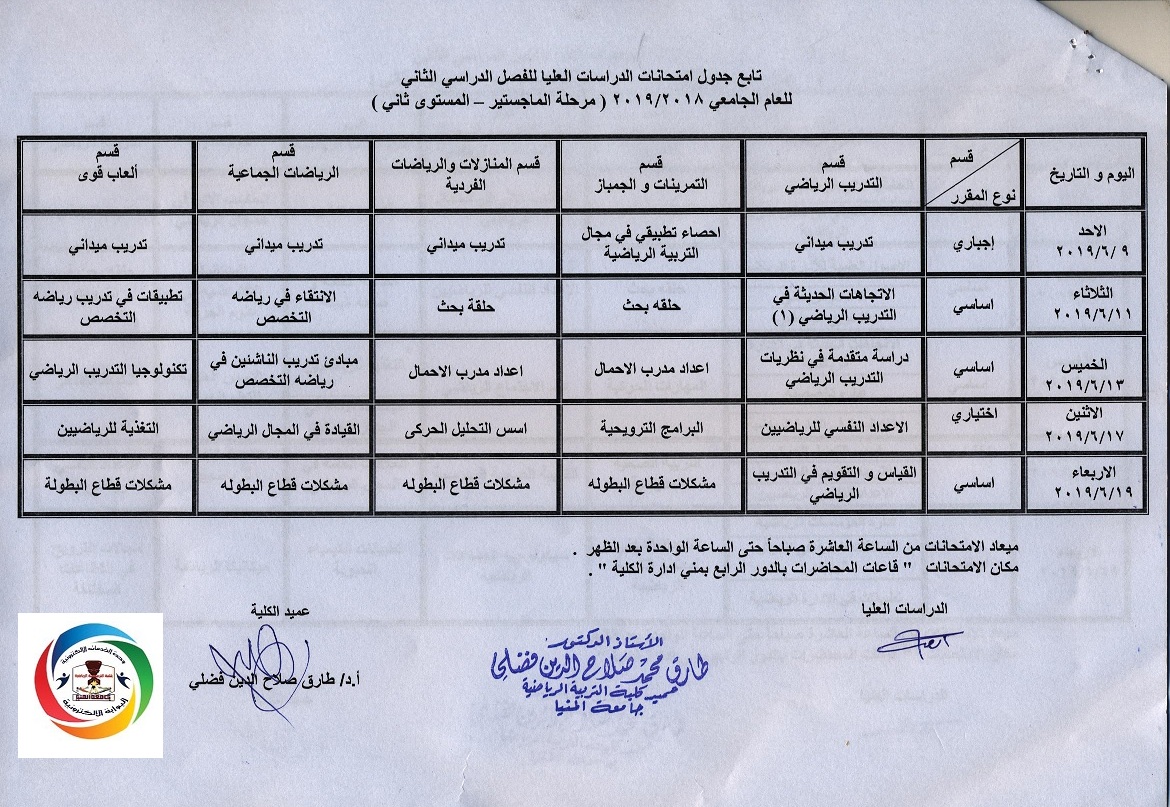 تابع جدول امتحانات الدراسات العليا للفصل الدراسي الثاني
للعام الجامعي ٢٠١٩/٢٠١٨ ( مرحلة الماجستير – المستوى ثاني )
اليوم و التاريخ
قسم
نوع المقرر
قسم
التدريب الرياضي
قسم
التمرينات و الجمباز
قسم المنازلات والرياضات
الفردية
قسم
الرياضات الجماعية
قسم
ألعاب قوى
الاحد
٢٠١٩/٦/ ٩
إجباري
تدريب ميداني
احصاء تطبيقي في مجال
التربية الرياضية
تدريب ميداني
تدريب ميداني
تدريب ميداني
الثلاثاء
٢٠١٩/٦/١١
اساسي
الاتجاهات الحديثة في
التدريب الرياضي (١)
حلقه بحث
حلقة بحث
الانتقاء في رياضه
التخصص
تطبيقات في تدريب رياضه
التخصص
الخميس
٢٠١٩/٦/١٣
اساسي
دراسة متقدمة في نظريات
التدريب الرياضي
اعداد مدرب الاحمال
اعداد مدرب الاحمال
مبادئ تدريب الناشنين في
رياضه التخصص
تكنولوجيا التدريب الرياضي
الاثنين
٢٠١٩/٦/١٧
اختياري
الاعداد النفسي للرياضيين
البرامج الترويحية
اسس التحليل الحركى
القيادة في المجال الرياضي
التغذية للرياضيين
الاربعاء
٢٠١٩/٦/١٩
اساسي
القياس و التقويم في التدريب
الرياضي
مشكلات قطاع البطوله
مشكلات قطاع البطولة
مشكلات قطاع البطوله
مشكلات قطاع البطولة
ميعاد الامتحانات من الساعة العاشرة صباحاً حتى الساعة الواحدة بعد الظهر .
مكان الامتحانات " قاعات المحاضرات بالدور الرابع بمني ادارة الكلية " .
الدراسات العليا
عميد الكلية
الأستاذ الدكتور
طارق محمد صلاح الدين فضلي
عميد كلية التربية الرياضية
جامعة المنيا
أ.د/ طارق صلاح الدين فضلي
وحدة الخدمات الإلكترونية
البوابة الالكترونية